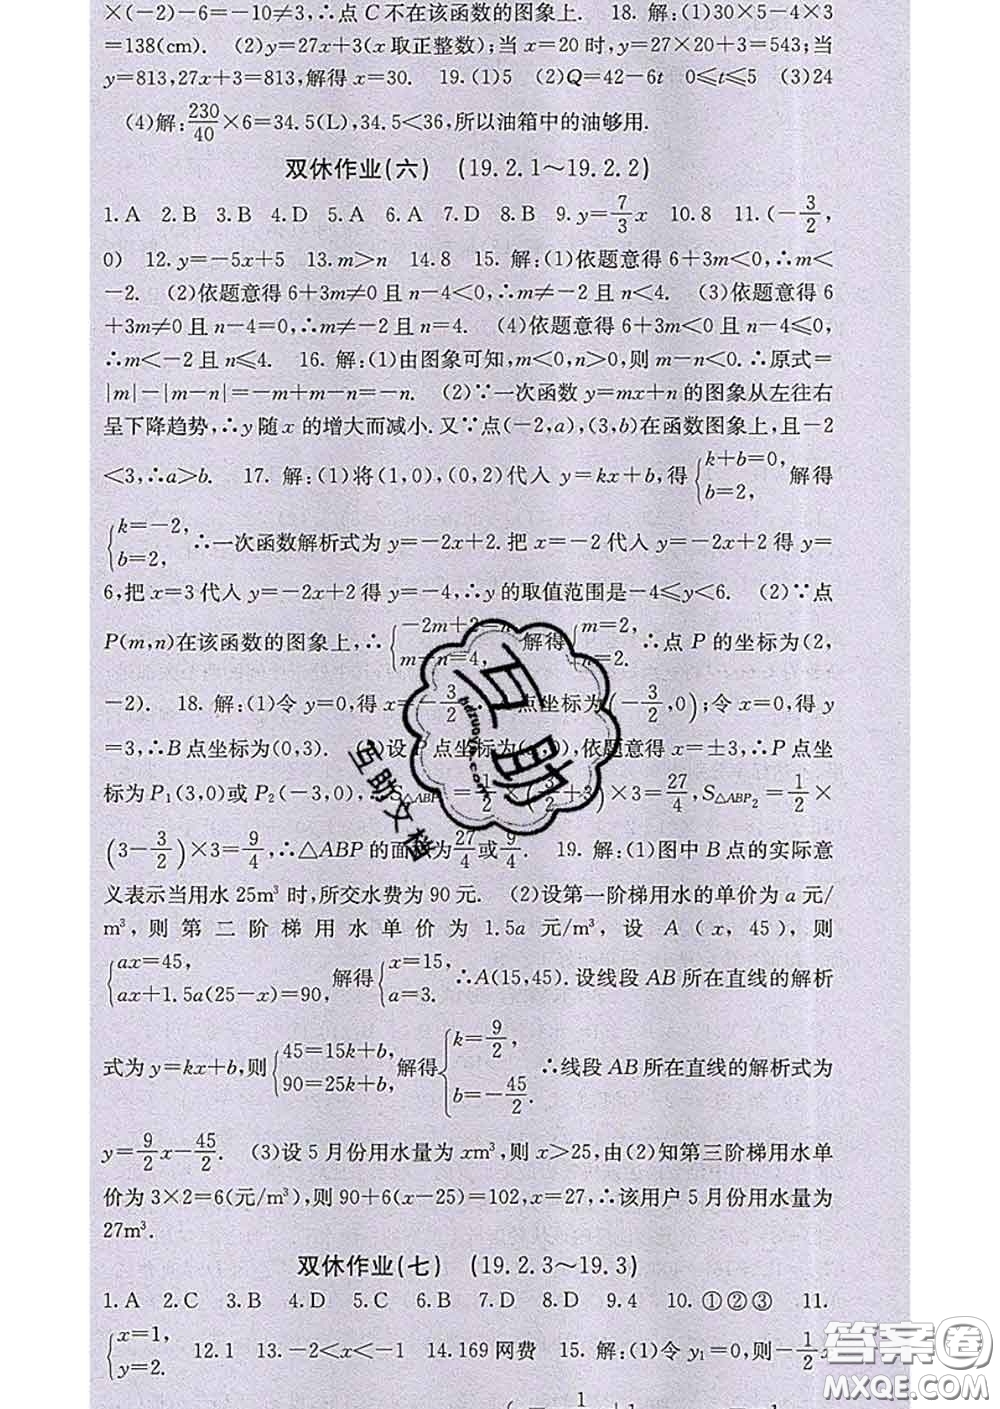 ×(-2)-6=-10≠3,∴点 C 不在该函数的图象上. 18. 解:(1)30×5-4×3
=138(cm). (2)y=27x+3(x 取正整数);当 x=20 时,y=27×20+3=543;当
y=813,27x+3=813,解得 x=30. 19.(1)5 (2)Q=42-6t 0≤t≤5 (3)24
(4)解:230/40×6=34.5(L),34.5<36,所以油箱中的油够用.
双休作业(六) (19.2.1~19.2.2)
1.A 2.B 3.B 4.D 5.A 6.A 7.D 8.B 9.y=7/3x 10.8 11.(-3/2,
0) 12.y=-5x+5 13.m>n 14.8 15. 解:(1)依题意得 6+3m<0,∴m<
-2. (2)依题意得 6+3m≠0 且 n-4<0,∴m≠-2 且 n<4. (3)依题意得 6
+3m≠0 且 n-4=0,∴m≠-2 且 n=4. (4)依题意得 6+3m<0 且 n-4≤0,
∴m<-2 且 n≤4. 16. 解:(1)由图象可知,m<0,n>0,则 m-n<0.∴原式=
|m|-|m-n|=-m+m-n=-n. (2)∵一次函数 y=mx+n 的图象从左往右
呈下降趋势,∴y 随 x 的增大而减小.又∵点(-2,a),(3,b)在函数图象上,且-2
<3,∴a>b. 17. 解:(1)将(1,0),(0,2)代入 y=kx+b,得{k+b=0, b=2, 解得
{k=-2, b=2, ∴一次函数解析式为 y=-2x+2.把 x=-2 代入 y=-2x+2 得 y=
6,把 x=3 代入 y=-2x+2 得 y=-4,∴y 的取值范围是-4≤y<6. (2)∵点
P(m,n)在该函数的图象上,∴{-2m+2=n, m-n=4, 解得{m=2, n=-2. ∴点 P 的坐标为(2,
-2). 18. 解:(1)令 y=0,得 x=-3/2 点坐标为(-3/2,0);令 x=0,得 y
=3,∴B 点坐标为(0,3). 设 P 点坐标为 ,0),依题意得 x=±3,∴P 点坐
标为 P1(3,0)或 P2(-3,0), S△ABP =1/2×(3/2+3)×3=27/4,S△ABP2=1/2×
(3-3/2)×3=9/4,∴△ABP 的面 为27/4或9/4. 19. 解:(1)图中 B 点的实际意
义表示当用水 25m³ 时,所交水费为 90 元. (2)设第一阶梯用水的单价为 a 元/
m³,则第二阶梯用水单价为 1.5a 元/m³,设 A(x,45),则
{ax=45, ax+1.5a(25-x)=90, 解得{x=15, a=3. ∴A(15,45).设线段 AB 所在直线的解析
式为 y=kx+b,则{45=15k+b, 90=25k+b, 解得{k=9/2, b=-45/2. ∴线段 AB 所在直线的解析式为
y=9/2x-45/2. (3)设 5 月份用水量为 xm³,则 x>25,由(2)知第三阶梯用水单
价为 3×2=6(元/m³),则 90+6(x-25)=102,x=27,∴该用户 5 月份用水量为
27m³.
双休作业(七) (19.2.3~19.3)
1.A 2.C 3.B 4.D 5.C 6.B 7.D 8.D 9.4 10.①②③ 11.
{x=1, y=2. 12.1 13.-2<x<-1 14.169 网费 15. 解:(1)令 y1=0,则-1/2x
互助
hdzuoye.com
互助文档
答案圈
MXQE.COM